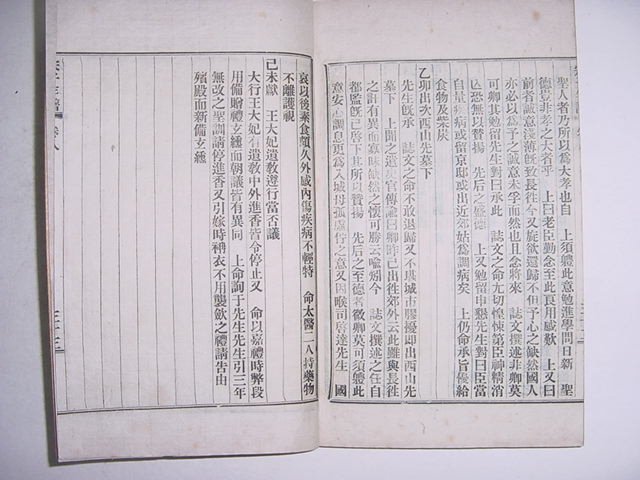 聖人者乃所以爲大孝也自　上須軆此意勉進學問日新　聖
德豈非孝之大者乎　上曰老臣勤念至此良用感歎　上又曰
前者誠意淺薄旣致長徃今又旋欲還歸不但予心之缺然國人
亦必以爲予之誠意未孚而然也且念將來　誌文撰述非卿莫
可卿其勉留先生對曰承此　誌文之命尤切惶悚第臣神精消
亡恐無以贊揚　先后之盛德　上又勉留申懇先生對曰臣當
自量病或留京邸或出近郊姑爲調病矣　上仍命承旨優給
食物及柴炭
乙卯出次西山先墓下
先生旣承　誌文之命不敢退歸又不堪城市膠擾即出西山先
墓下　上聞之遣史官傳諭曰卿昨已出徃郊外云此雖與長徃
之計有異而寡昧缺然之懷可勝云喩矧今　誌文撰述之任自
都監旣已啓下其所以贊揚　先后之至德者微卿莫可須軆此
意安心調息更爲入城毋孤虛佇之意又因喉司啓達先生　國
哀以後素食頗久外感內傷疾病不輕特　命太醫二人持藥物
不離護視
己未獻　王大妃遺敎遵行當否議
大行王大妃有遺敎中外進香皆令停止又　命以嘉禮時弊段
用備贈禮玄纁而朝議皆有異同　上命詢于先生先生引三年
無改之聖訓請停進香又引嫁時褠衣不用襲斂之禮請告由
殯殿而新備玄纁